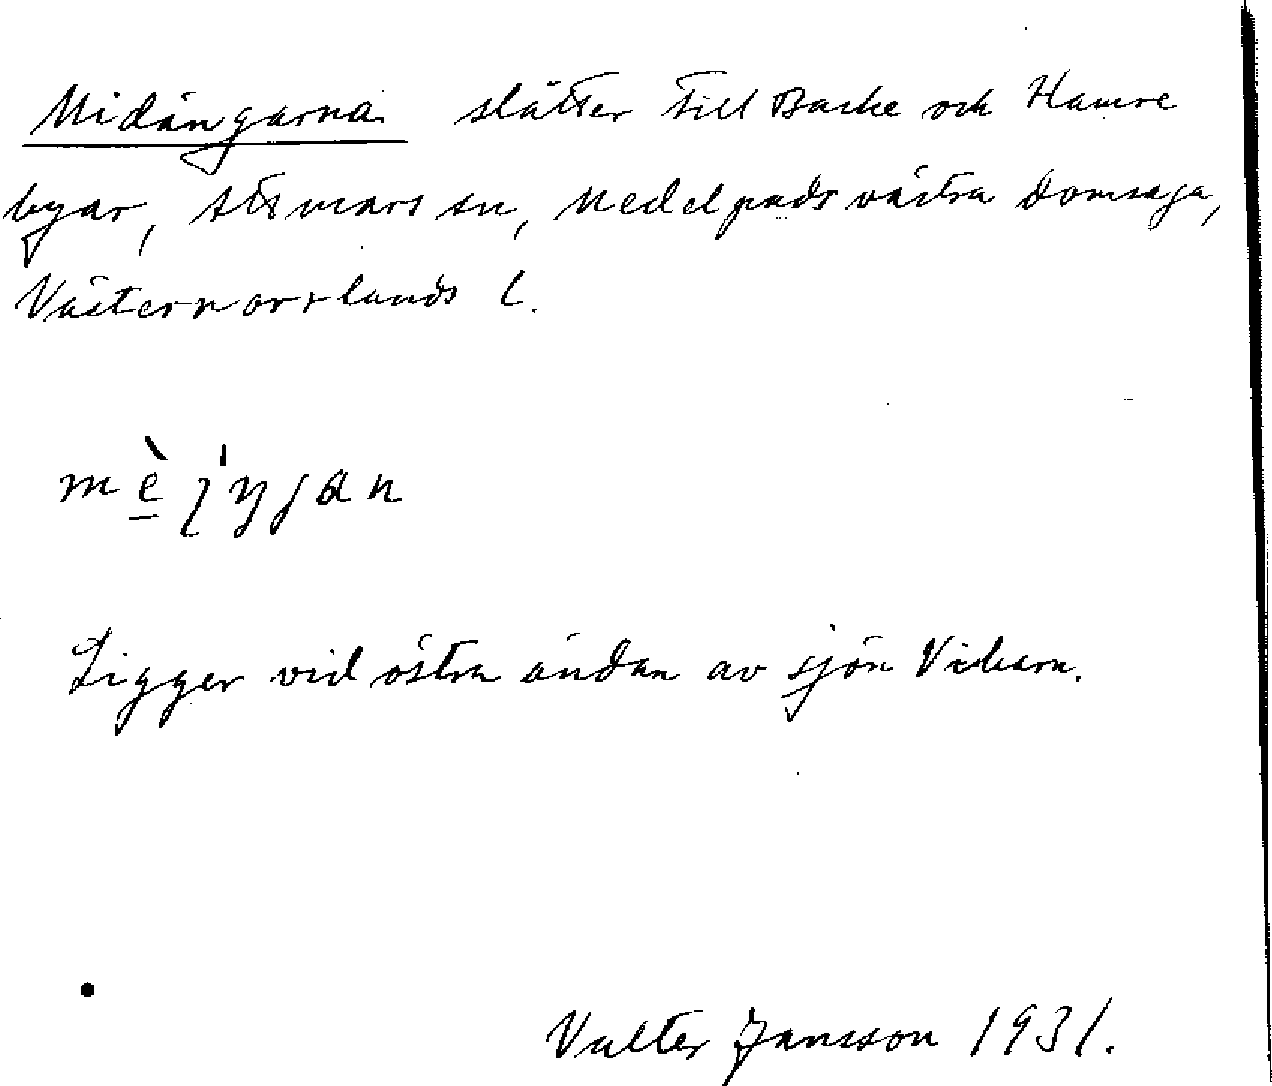 Midängarna slåtter till Backe och Hamre
byar, Attmars sn, Medelpads västra domsaga,
Västernorrlands l.
Ligger vid östra ändan av sjön Vikarn.
Valter Jansson 1931.